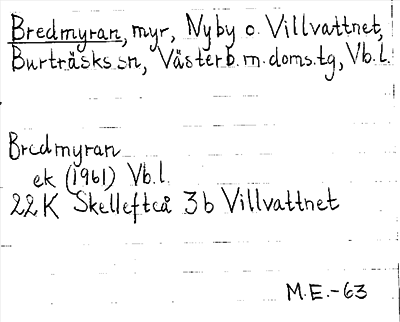 Bredmyran, myr, Nyby o. Villvattnet,
Burträsks sn, Västerb. m. doms. tg, Vb. l.
Bredmyran
ek (1961) Vb. l.
22 K Skellefteå 3b Villvattnet
M.E.-63